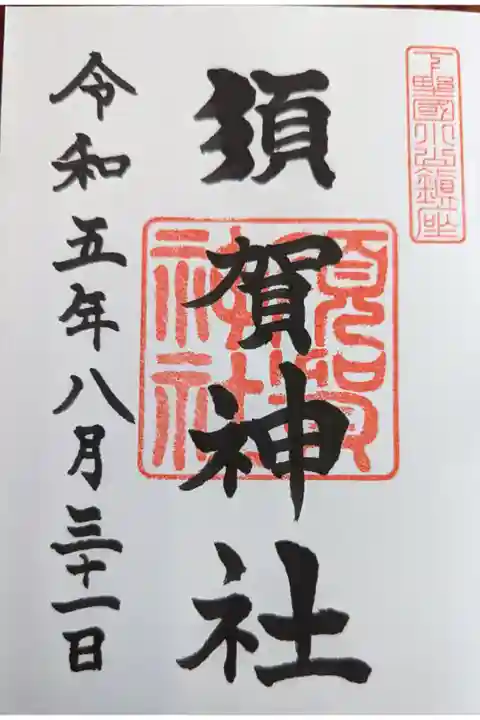 下野國小山鎮座
須賀神社
須賀神社
令和五年八月三十一日